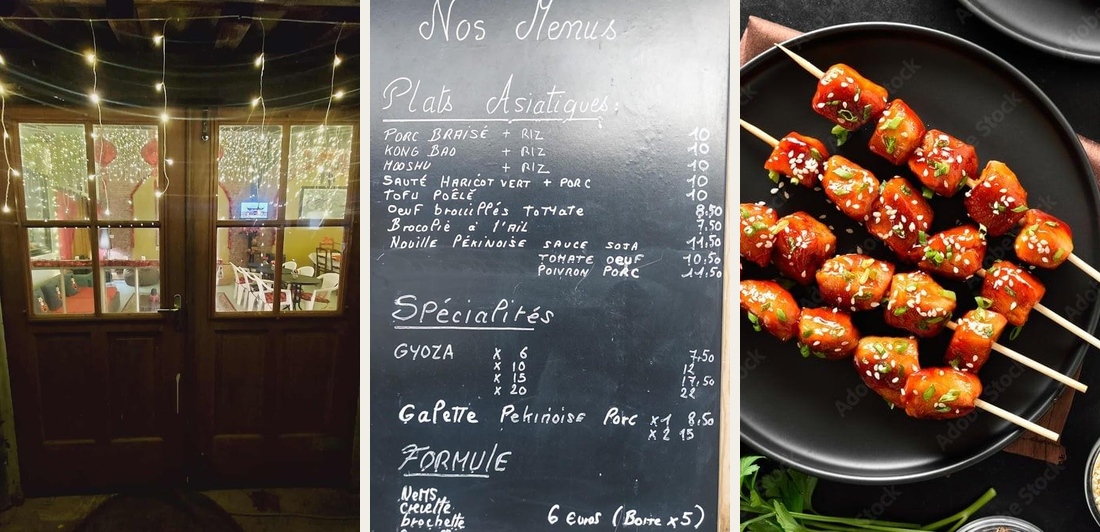 Nos Menus
Plats Asiatiques:
PORC BRAISÉ + RIZ 10
KONG BAO + RIZ 10
MOOSHU + RIZ 10
SAUTÉ HARICOT VERT + PORC 10
TOFU POÊLÉ 10
OEUF brouillés TOMATE 8,50
Brocolie à l'AIL 7,50
NOUILLE PÉKINOISE SAUCE SOJA 11,50
TOMATE OEUF 10,50
POIVRON PORC 11,50
Spécialités
GYOZA X 6 7,50
X 10 12
X 15 17,50
X 20 22
Galette Pekinoise Porc x1 8,50
x2 15
FORMULE
NEMS
crevette
brochette 6 Euros (Boite x5)
Adobe Stock